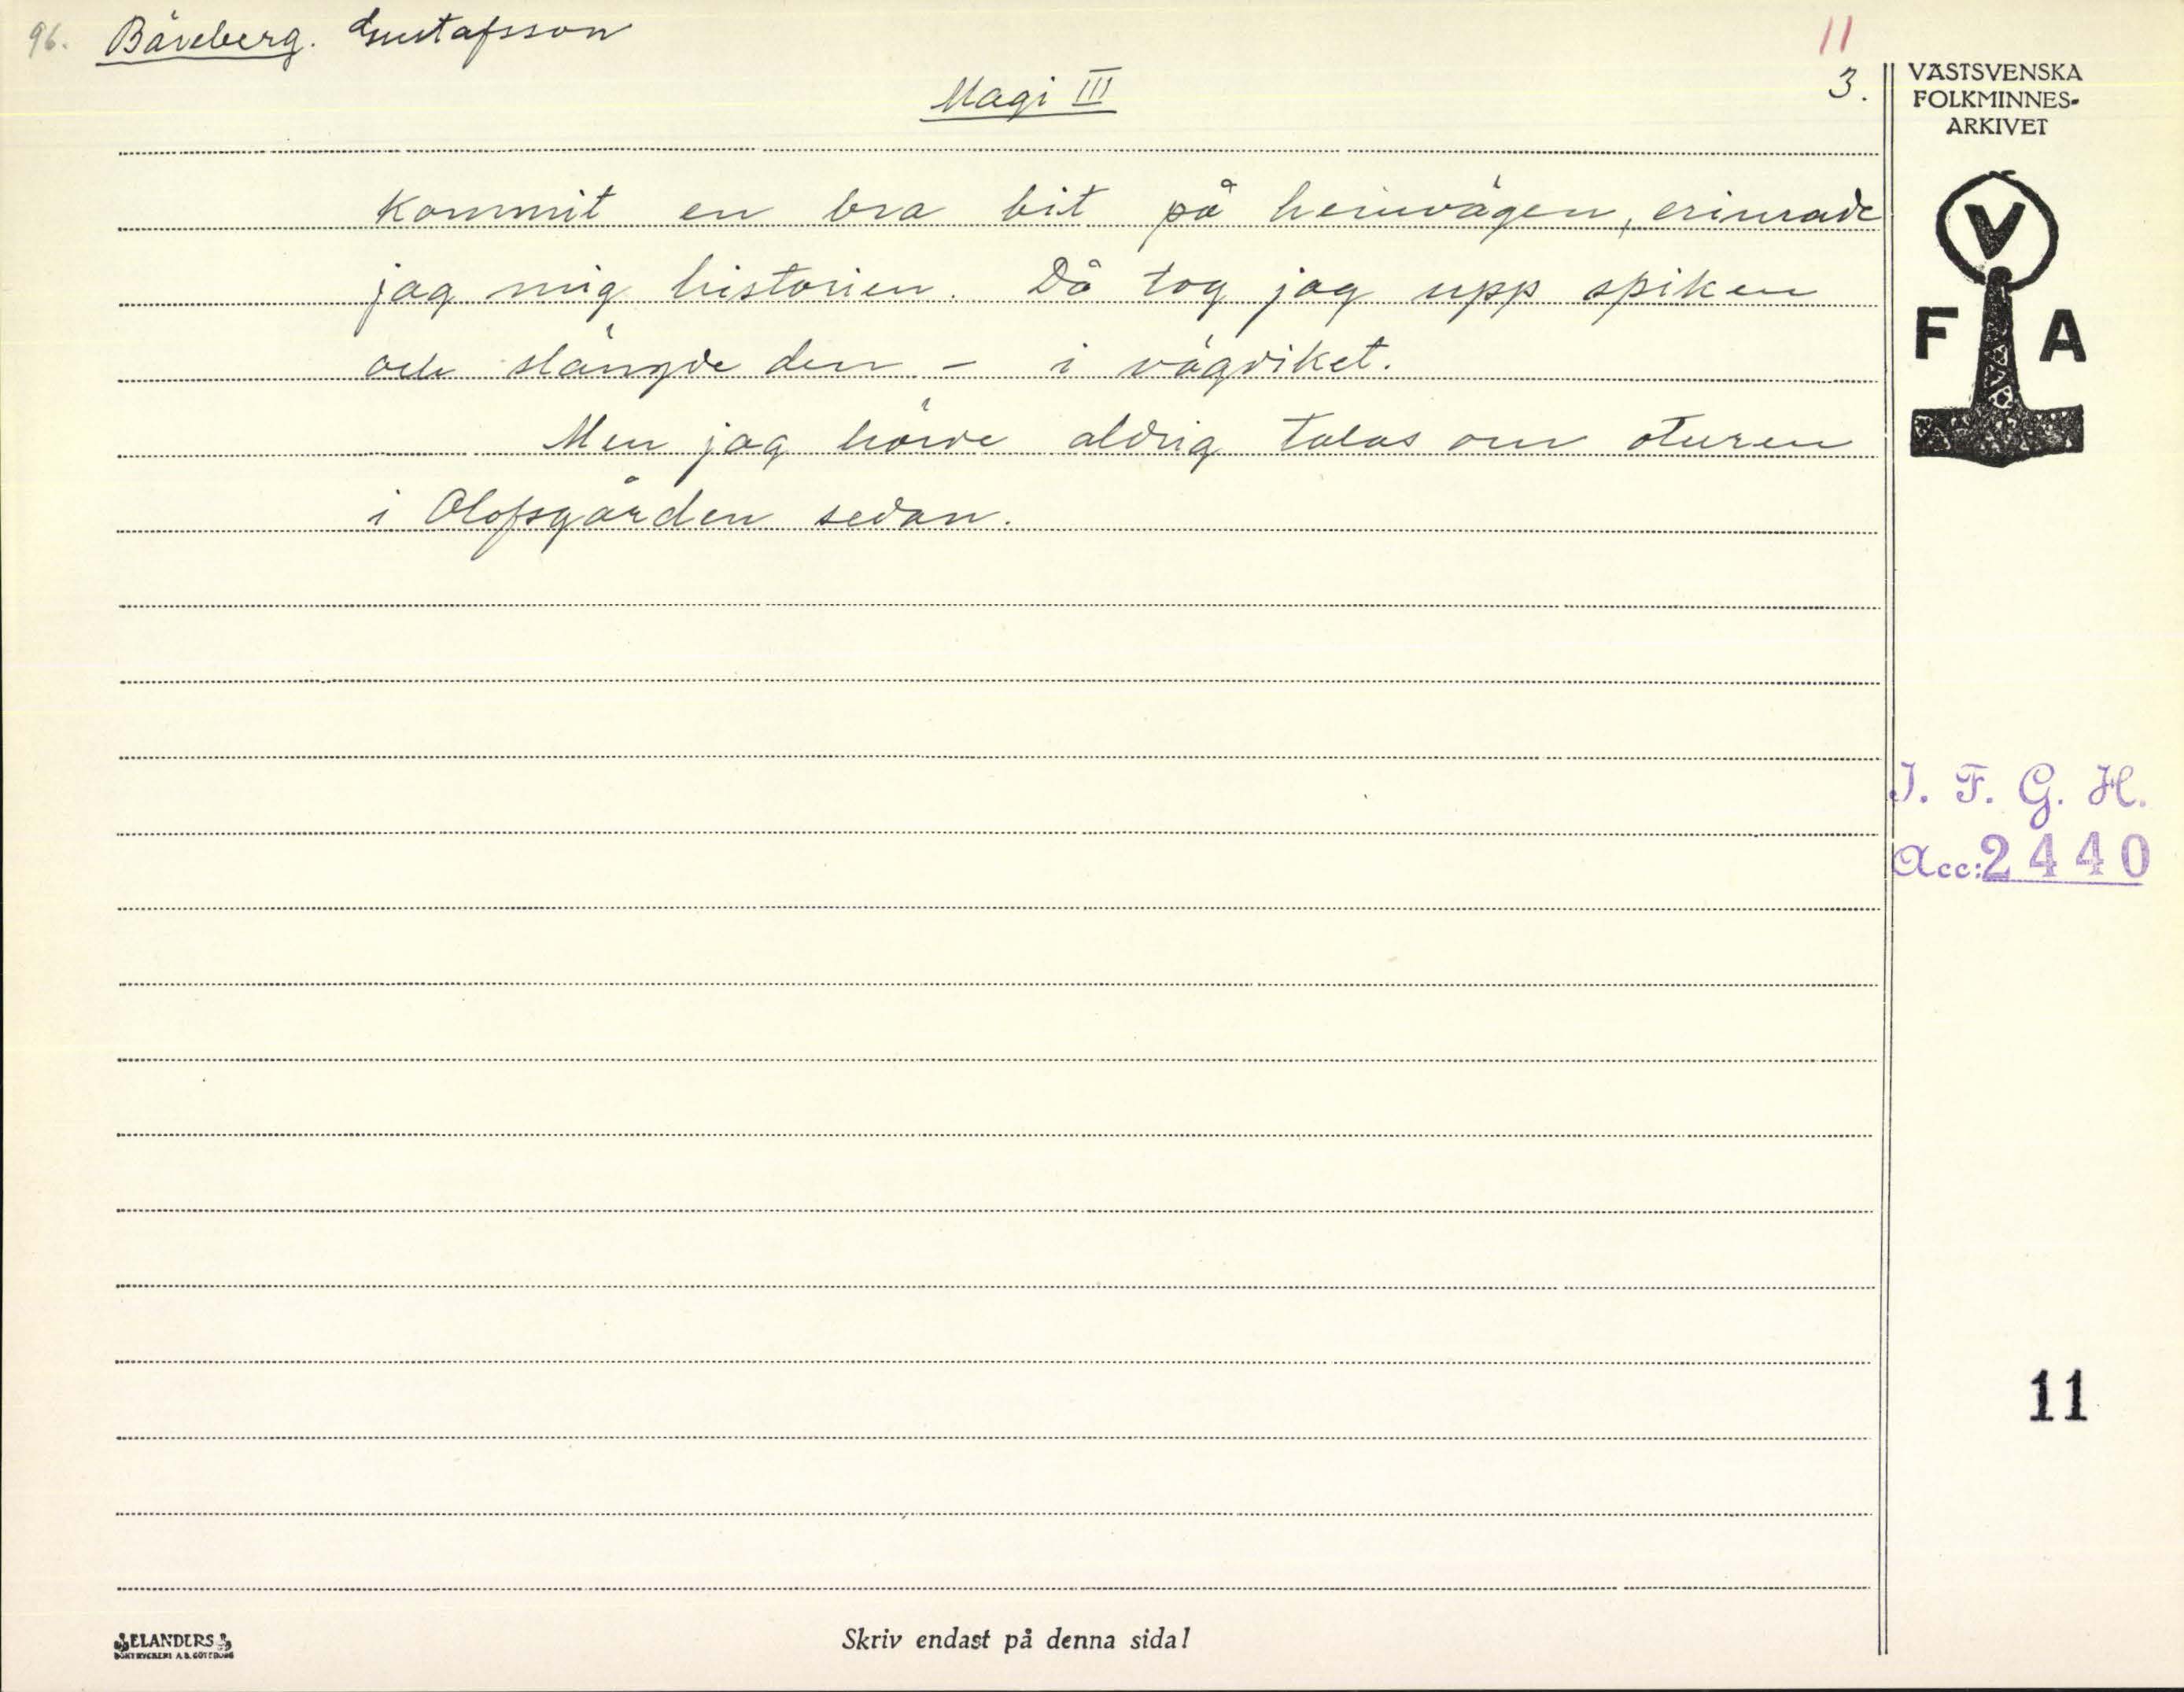 96. Bäreberg. Gustafsson
11
Magi III
3.
VÄSTSVENSKA
FOLKMINNES-
ARKIVET
kommit en bra bit på hemvägen, erinrade
jag mig historien. Då tog jag upp spiken
och slängde den – i vägdiket.
Men jag hörde aldrig talas om oturen
i Olofsgården sedan.
V
F A
I. F. G. H.
Acc: 2440
11
ELANDERS
BOKTRYCKERI A.B. GÖTEBORG
Skriv endast på denna sida!